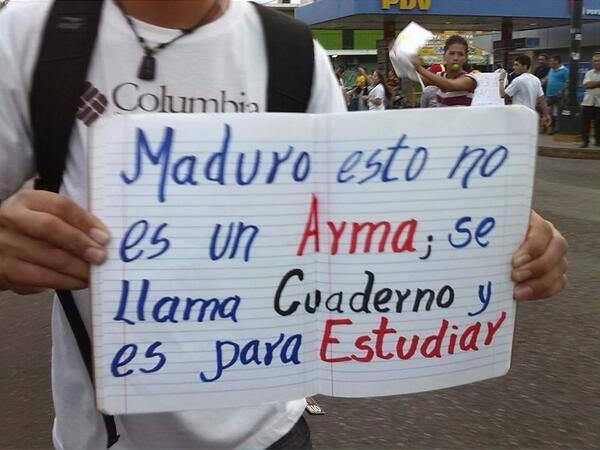 PDV
Columbia
Maduro esto no
es un Arma; se
llama Cuaderno y
es para Estudiar